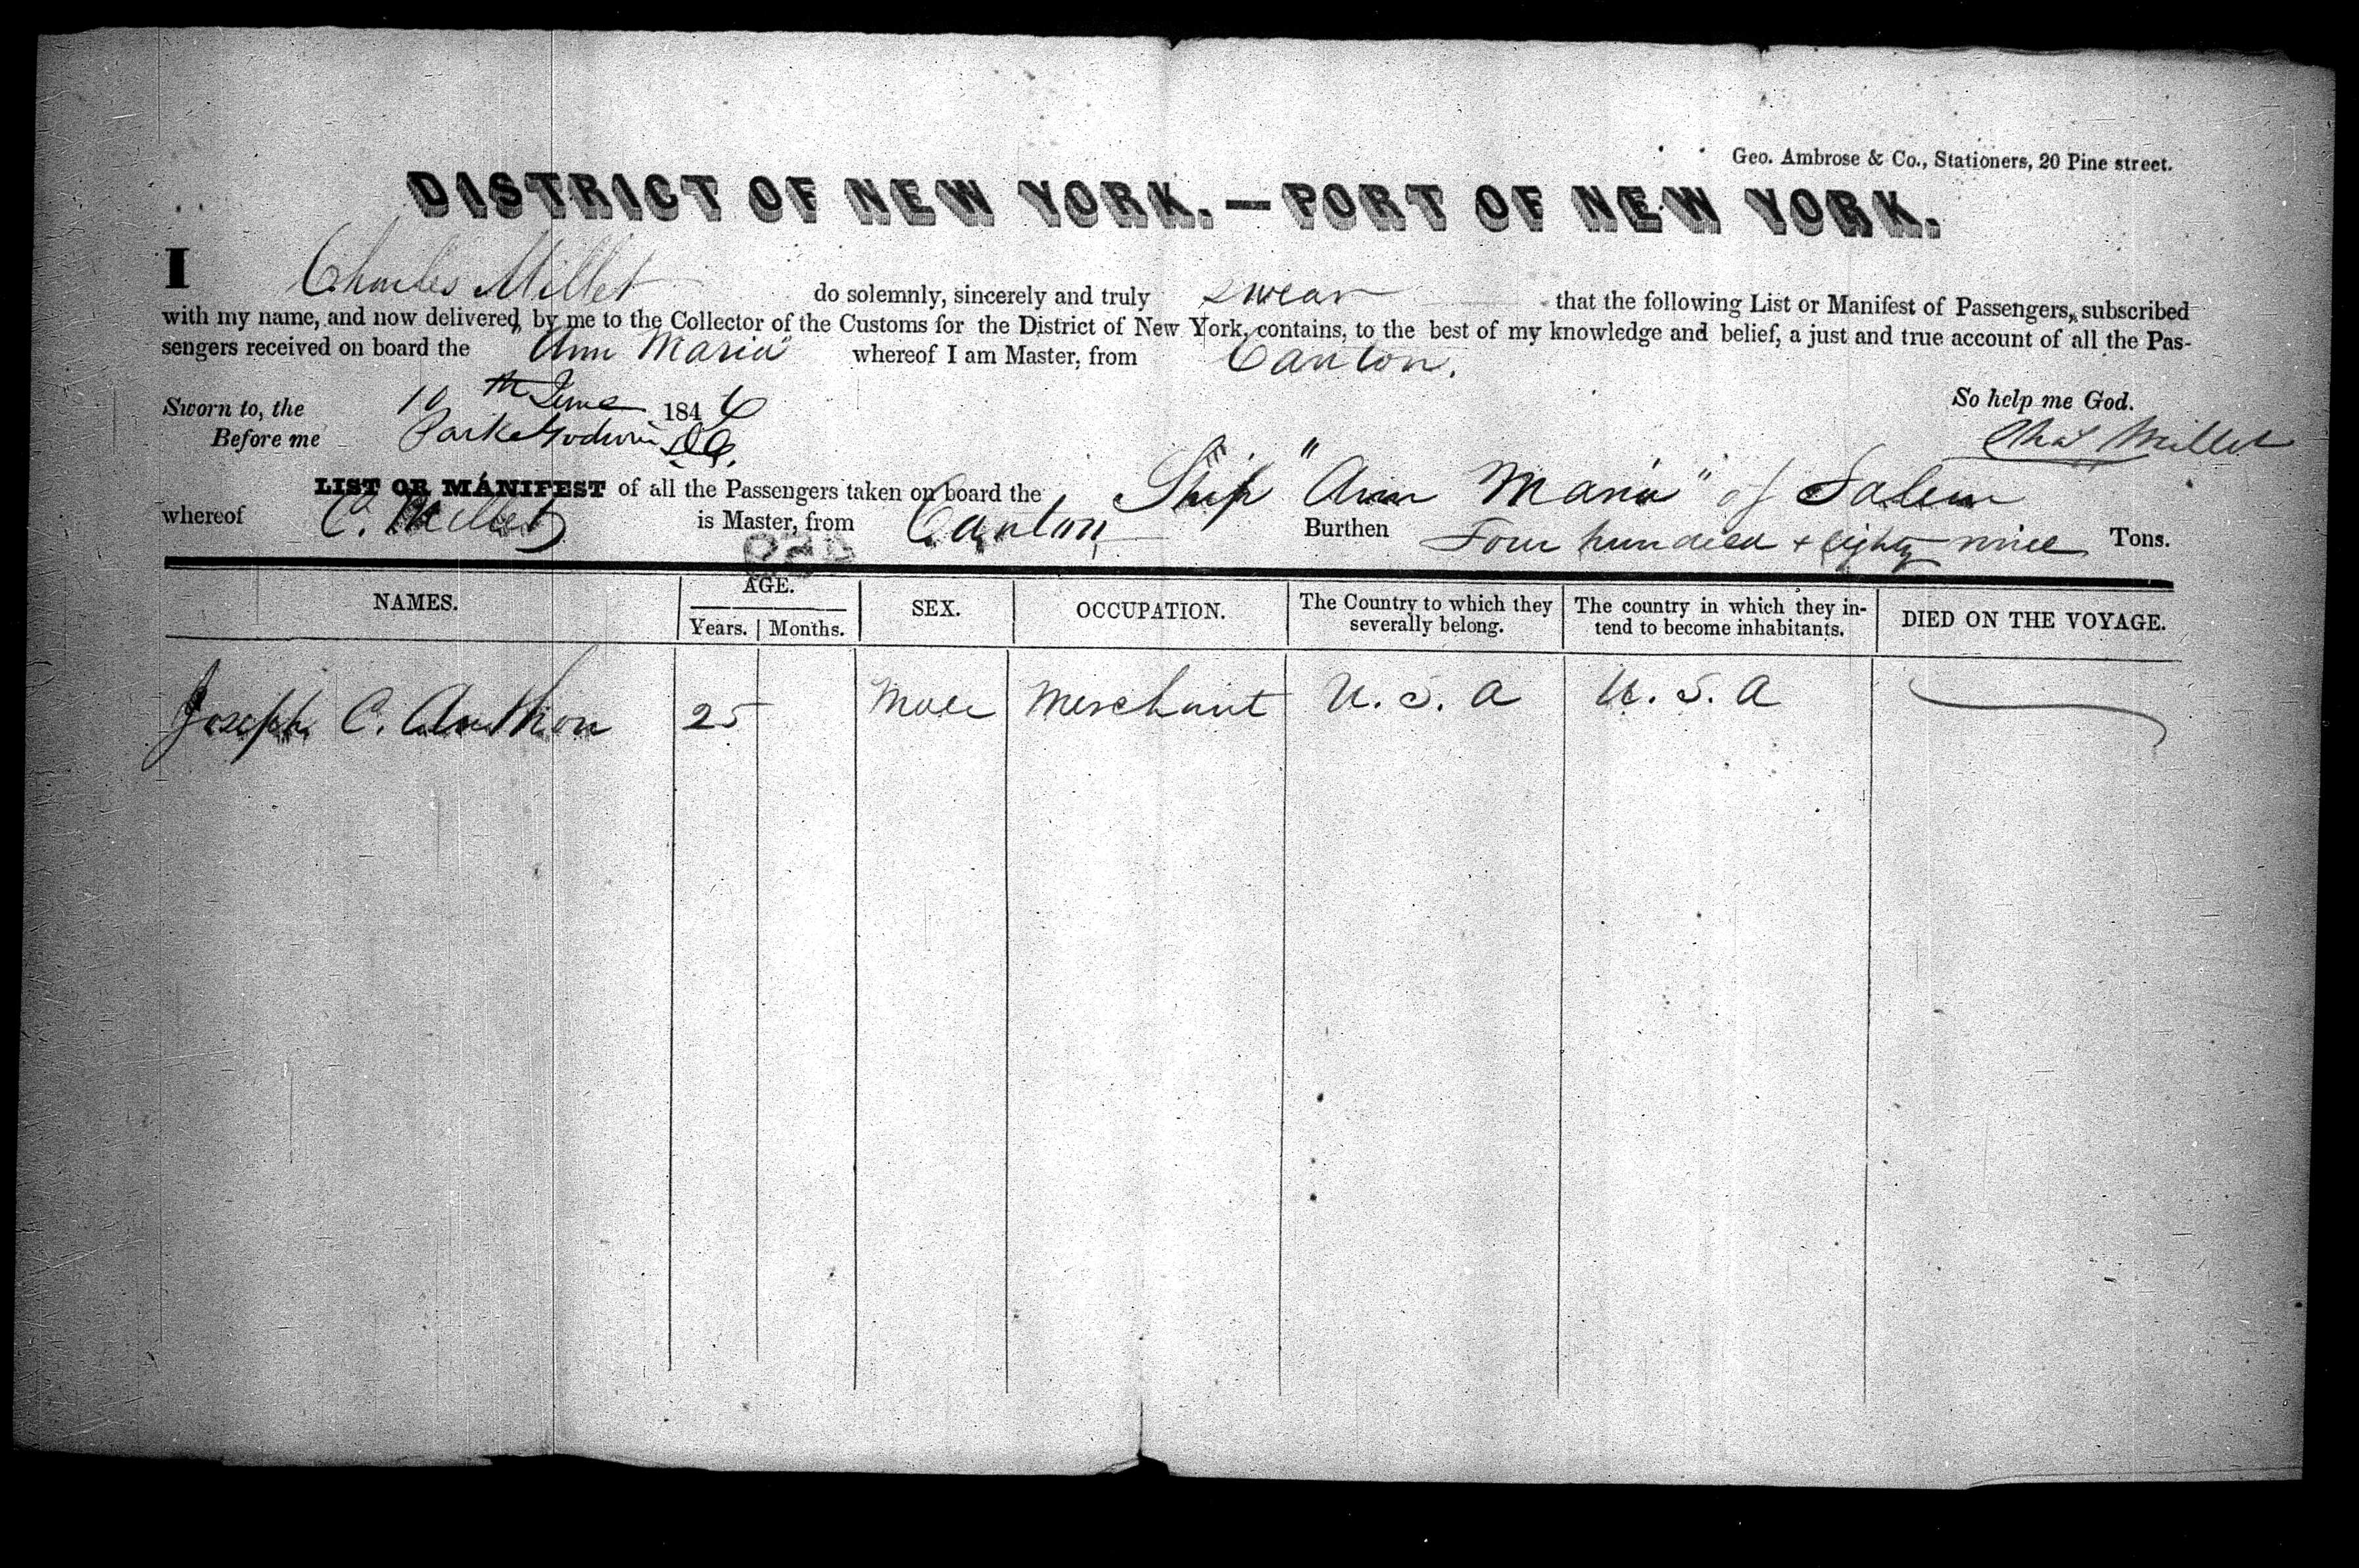 Geo. Ambrose & Co., Stationers, 20 Pine street.
DISTRICT OF NEW YORK.—PORT OF NEW YORK.
I Charles Millet do solemnly, sincerely and truly swear that the following List or Manifest of Passengers, subscribed
with my name, and now delivered by me to the Collector of the Customs for the District of New York, contains, to the best of my knowledge and belief, a just and true account of all the Pas-
sengers received on board the Ann Maria whereof I am Master, from Canton.
Sworn to, the 10th June 1846 So help me God.
Before me Parke Godwin Chas Millet
LIST OR MANIFEST of all the Passengers taken on board the Ship "Ann Maria" of Salem
whereof C. Millet is Master, from Canton Burthen Four hundred + eighty nine Tons.
NAMES. AGE. SEX. OCCUPATION. The Country to which they severally belong. The country in which they in-tend to become inhabitants. DIED ON THE VOYAGE.
Years. Months.
Joseph C. Anthon 25 Male Merchant U. S. A U. S. A